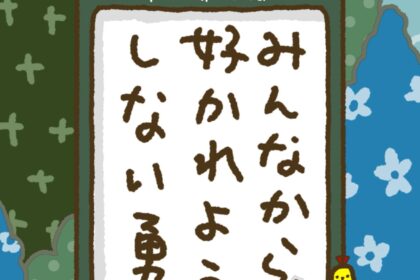 みんなから
好かれよう
しない勇